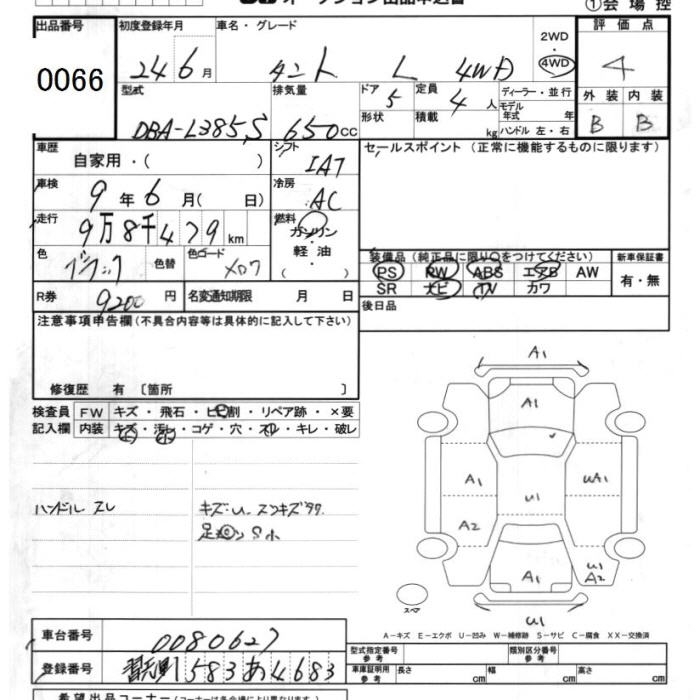 ①会場控
出品番号 0066
初度登録年月 24 6月
車名・グレード タント L 4WD
2WD
4WD
評価点 4
外装 内装
B B
型式 DBA-L385S
排気量 650cc
ドア 5
形状
定員 4人
積載 kg
ディーラー・並行
モデル年式 年
ハンドル 左・右
車歴 自家用・( )
シフト IAT
セールスポイント (正常に機能するものに限ります)
車検 9年 6月( 日)
冷房 AC
走行 9万8千479km
燃料 ガソリン・軽油・( )
色 ブラック 色替
色コード X07
装備品 (純正品に限り○をつけてください)
PS PW ABS エアB AW
SR ナビ TV カワ
新車保証書
有・無
R券 9200円
名変通知期限 月 日
後日品
注意事項申告欄(不具合内容等は具体的に記入して下さい)
修復歴 有 [箇所 ]
検査員記入欄
FW キズ・飛石・ヒビ割・リペア跡・×要
内装 キズ・汚れ・コゲ・穴・スレ・キレ・破レ
ハンドル スレ
キズ・U
A1
A1
A1
UA1
U1
A2
U1
A2
A1
U1
スペア
A-キズ E-エクボ U-凹み W-補修跡 S-サビ C-腐食 XX-交換済
車台番号 0080627
登録番号 583 あ 4683
型式指定番号 参考
類別区分番号 参考
車庫証明用 参考 長さ cm 幅 cm 高さ cm
希望出品コーナー